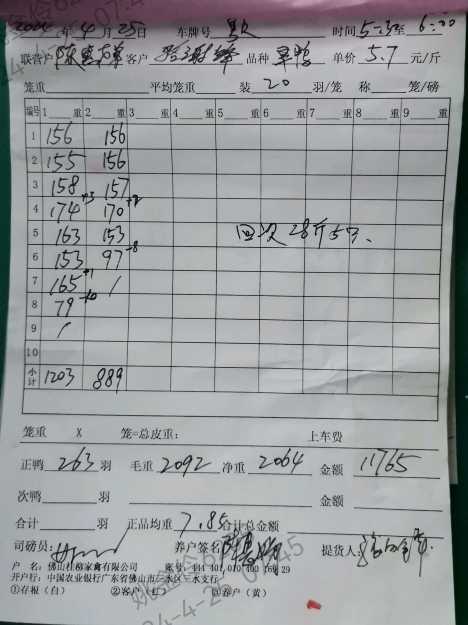 2024年4月25日 车牌号 时间5:30至6:00
联营户 客户 品种 单价5.7元/斤
笼重 平均笼重 装20羽/笼 称 笼/磅
编号 1 重 2 重 3 重 4 重 5 重 6 重 7 重 8 重 9 重
1 156 156
2 155 156
3 158 157
4 174 +3 170 +2
5 163 153 回次28斤5只、
6 153 97 -8
7 165 +1 /
8 79 -10
9 /
10
小计 1203 889
笼重 X 笼=总皮重: 上车费
正鸭263羽 毛重2092 净重2064 金额11765
次鸭 羽 金额
合计 羽 正品均重7.85 合计总金额
司磅员: 养户签名 提货人:
户 名: 佛山桂柳家禽有限公司 账号:
开户行: 中国农业银行广东省佛山市三水区三水支行
①存根(白) ②客户(红) ③养户(黄)